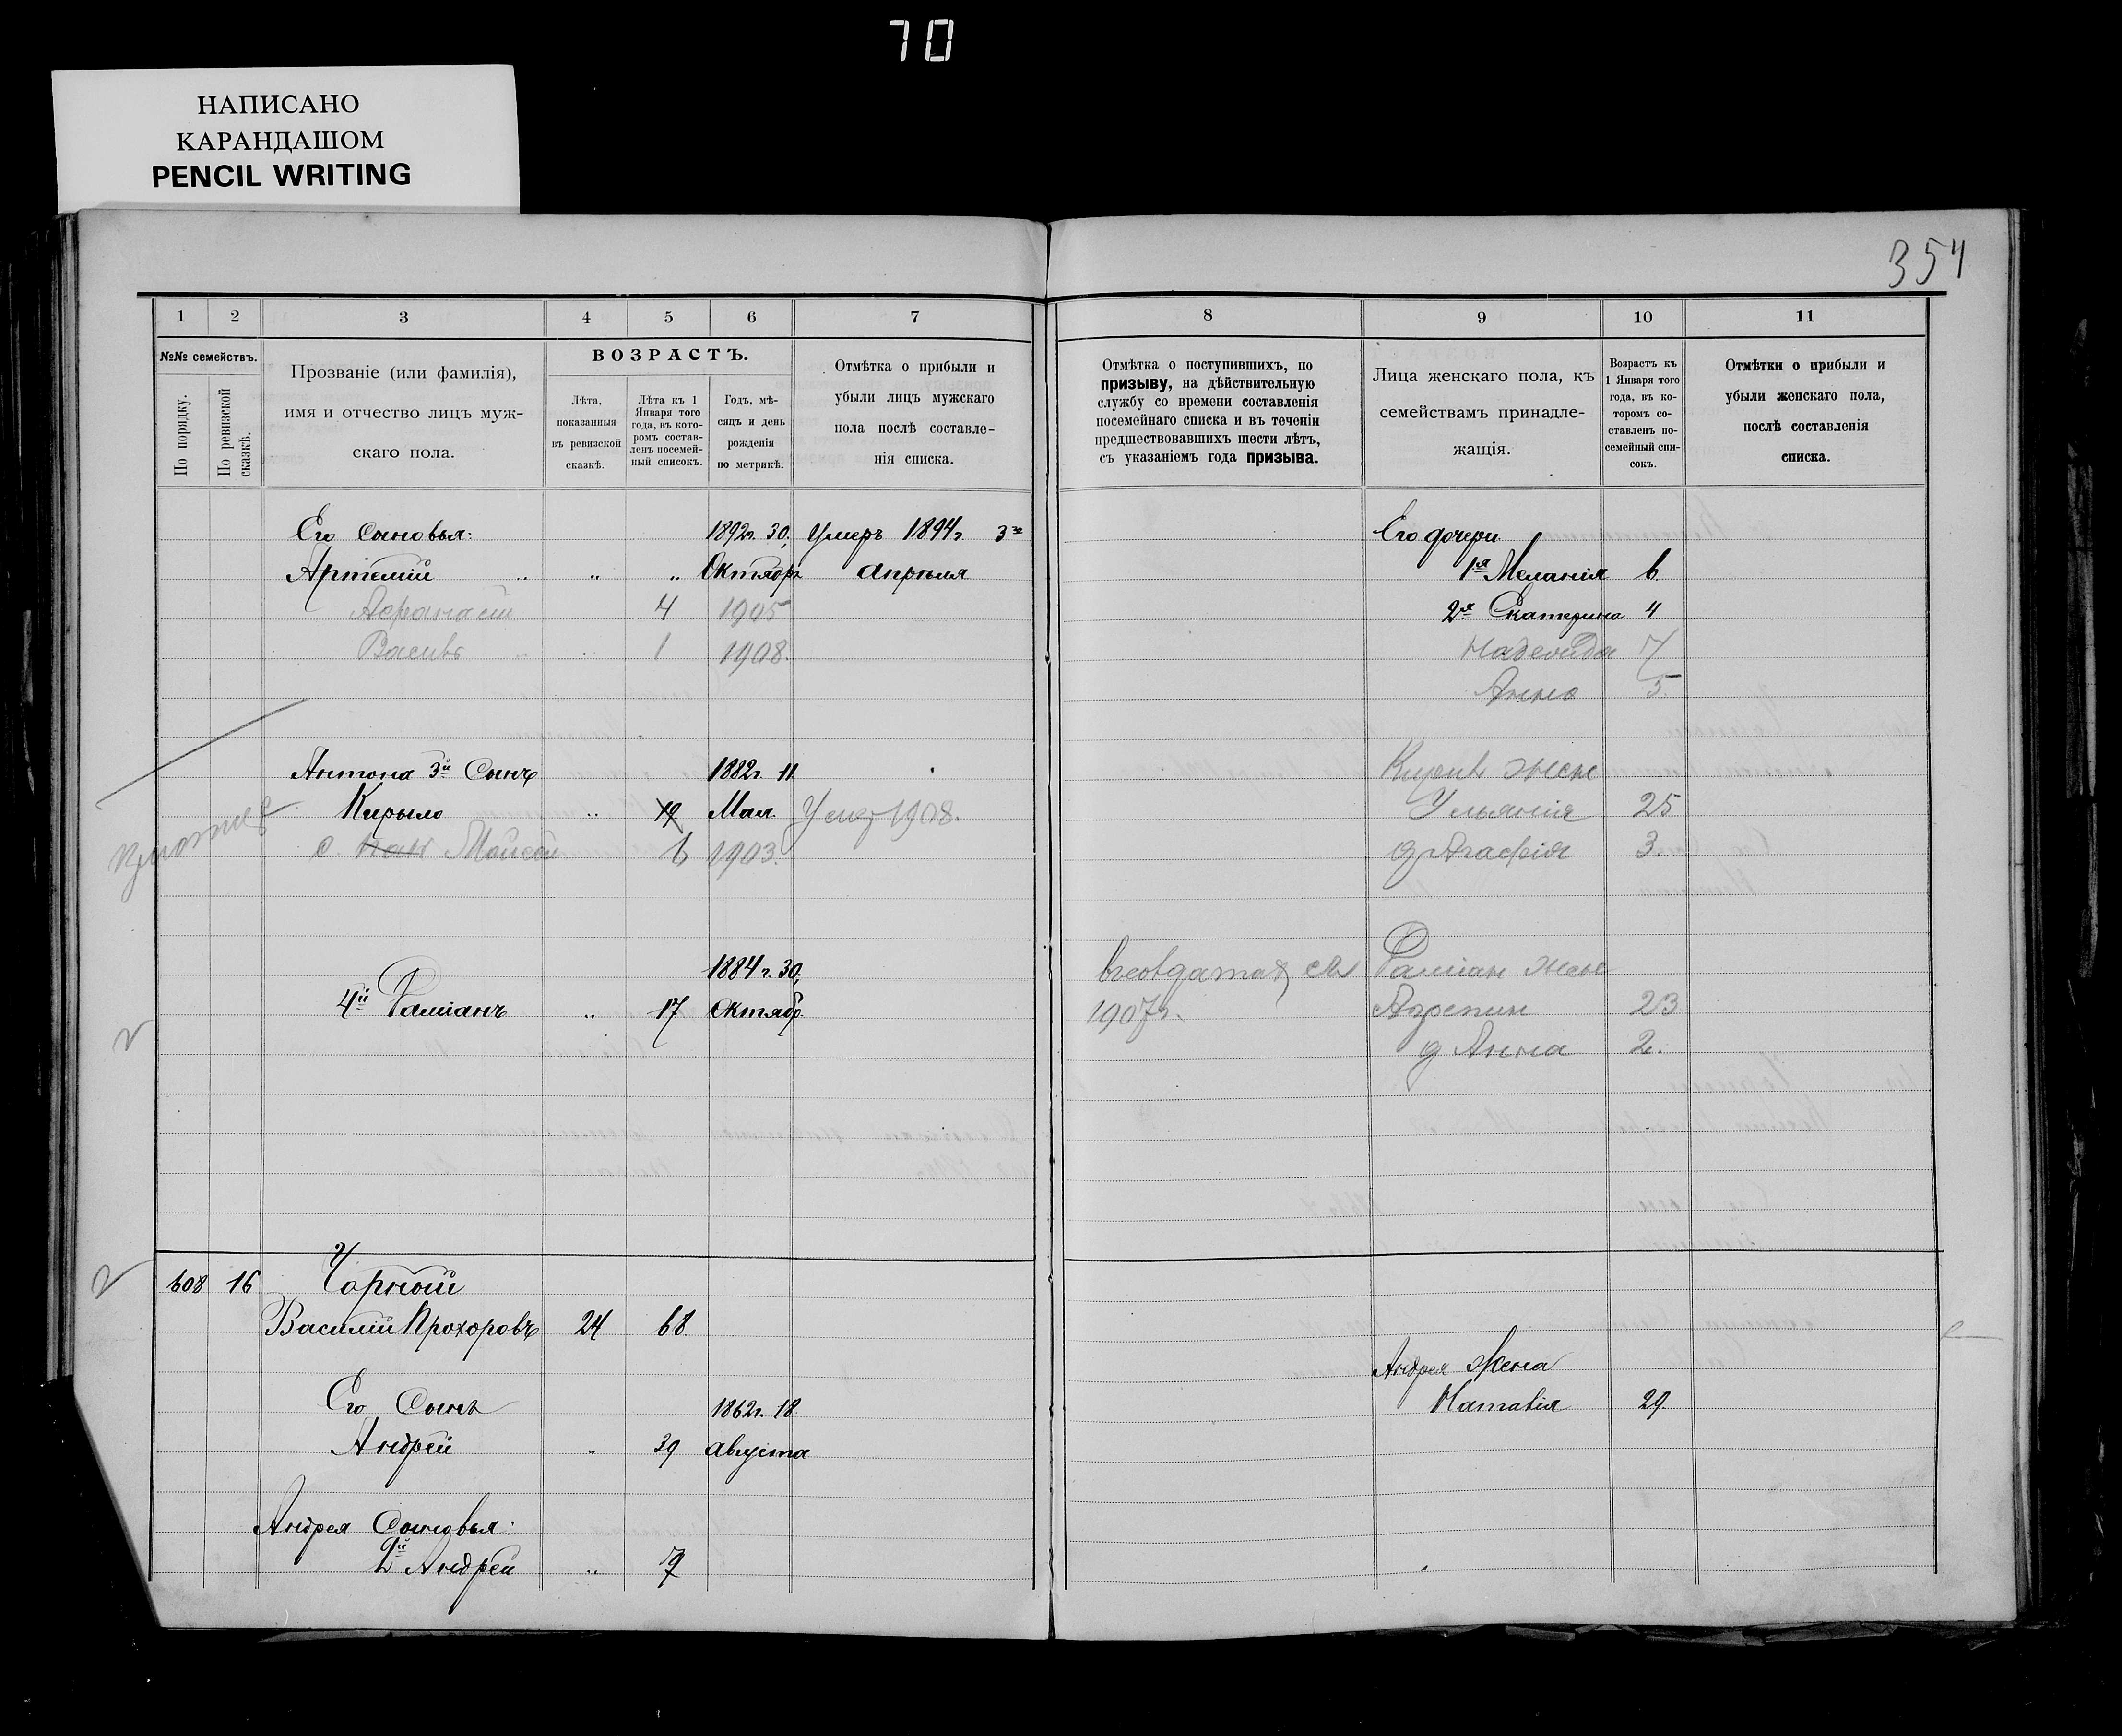 70
НАПИСАНО
КАРАНДАШОМ
PENCIL WRITING
354
1 2 3 4 5 6 7 8 9 10 11
№№ семействъ.
По порядку.
По ревизской сказкѣ.
Прозваніе (или фамилія),
имя и отчество лицъ муж-
скаго пола.
ВОЗРАСТЪ.
Лѣта,
показанныя
въ ревизской
сказкѣ.
Лѣта къ 1
Января того
года, въ кото-
ромъ состав-
ленъ посемей-
ный списокъ.
Годъ, мѣ-
сяцъ и день
рожденія
по метрикѣ.
Отмѣтка о прибыли и
убыли лицъ мужскаго
пола послѣ составле-
нія списка.
Отмѣтка о поступившихъ, по
призыву, на дѣйствительную
службу со времени составленія
посемейнаго списка и въ теченіи
предшествовавшихъ шести лѣтъ,
съ указаніемъ года призыва.
Лица женскаго пола, къ
семействамъ принадле-
жащія.
Возрастъ къ
1 Января того
года, въ ко-
торомъ со-
ставленъ по-
семейный спи-
сокъ.
Отмѣтки о прибыли и
убыли женскаго пола,
послѣ составленія
списка.
Его Сыновья: 1892г. 30. Умеръ 1894г. 3го Его дочери
Артемій " " Октябр. Апрѣля 1я Меланія 6
Афанасій 4 1905 2я Екатерина 4
Василь 1 1908. Надежда 7
Анна 5
Антона 3й Сынъ 1882г. 11 Кирилъ жена
Кирыло " 19 Мая. Умер 1908. Ульянія 25
с. Мойсей 6 1903. д Агафія 3.
1884 г. 30, Даміан жена
4й Даміанъ " 17 Октябр. 1907г. Агрепин 23
д Анна 2.
608 16 Чорный
Василій Прохоровъ 24 68
Андрея Жена
Его Сынъ 1862г. 18 Наталія 29
Андрей " 39 Августа
Андрея Сыновья:
Андрей " 7